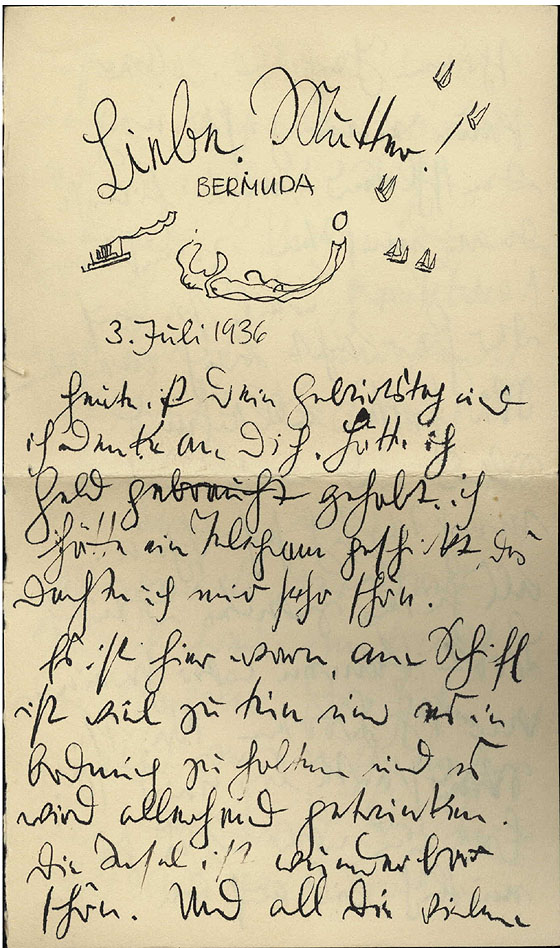 Liebe Mutter!
BERMUDA
3. Juli 1936
heute ist Dein Geburtstag und
ich denke an Dich. hätte ich
Geld gebraucht gehabt, ich
hätte ein Telegram geschickt, das
dachte ich mir sehr schön.
Es ist hier warm, am Schiff
ist viel zu tun um es in
Ordnung zu halten und es
wird allerhand getrunken.
Die Insel ist wunderbar
schön. Und all die vielen